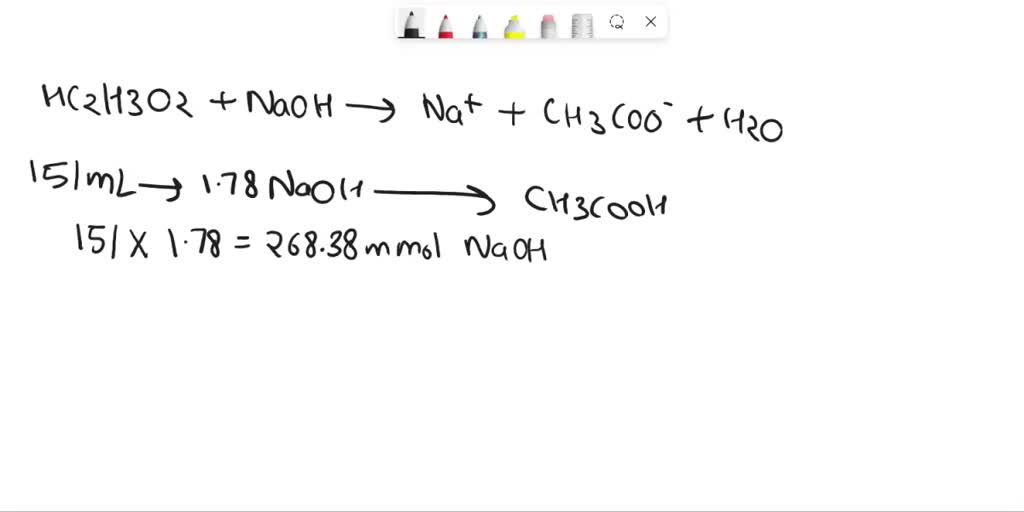 HC2H3O2 + NaOH → Na+ + CH3COO- + H2O
151mL → 1.78 NaOH → CH3COOH
151 X 1.78 = 268.38 mmol NaOH